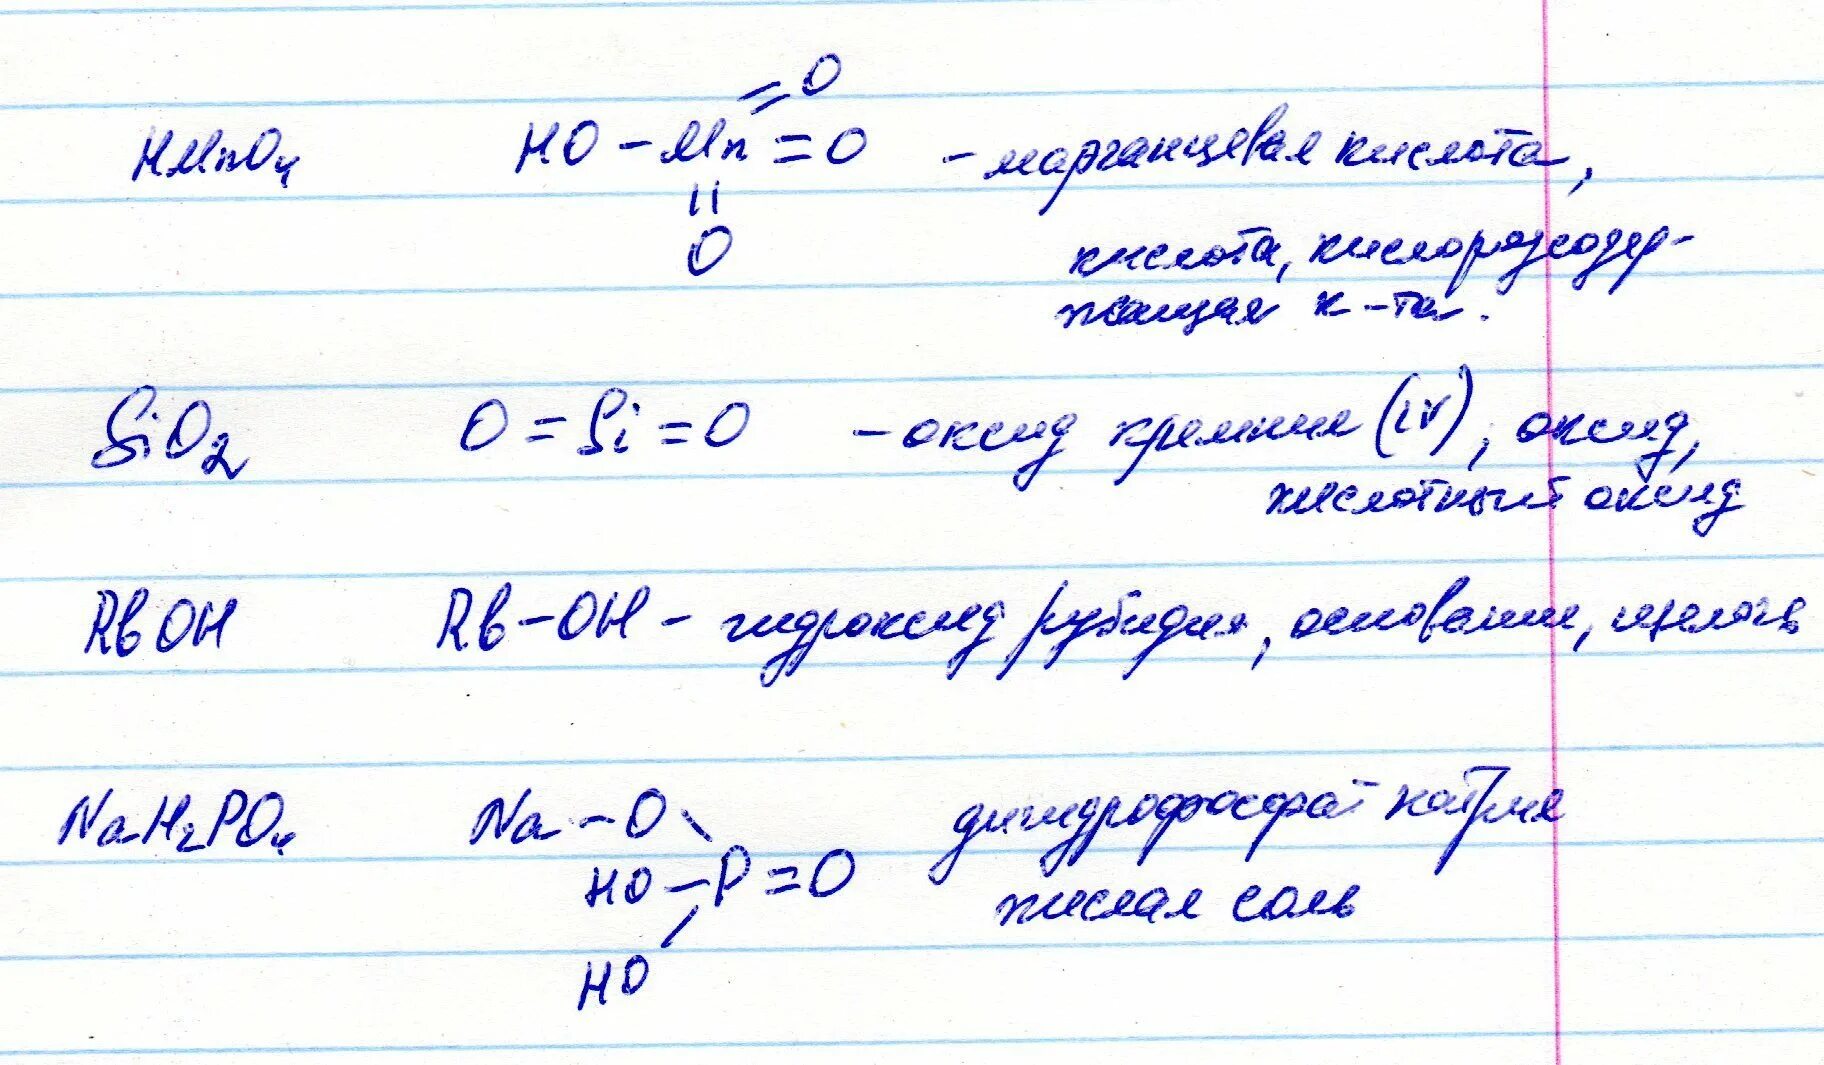 O
HMnO4 HO – Mn = O – марганцевая кислота,
O
кислота, кислородсодер-
жащая к-та.
SiO2 O = Si = O – оксид кремния (IV), оксид,
кислотный оксид
RbOH Rb – OH – гидроксид рубидия, основание, щелочь
NaH2PO4 Na – O дигидрофосфат натрия
HO – P = O кислая соль
HO